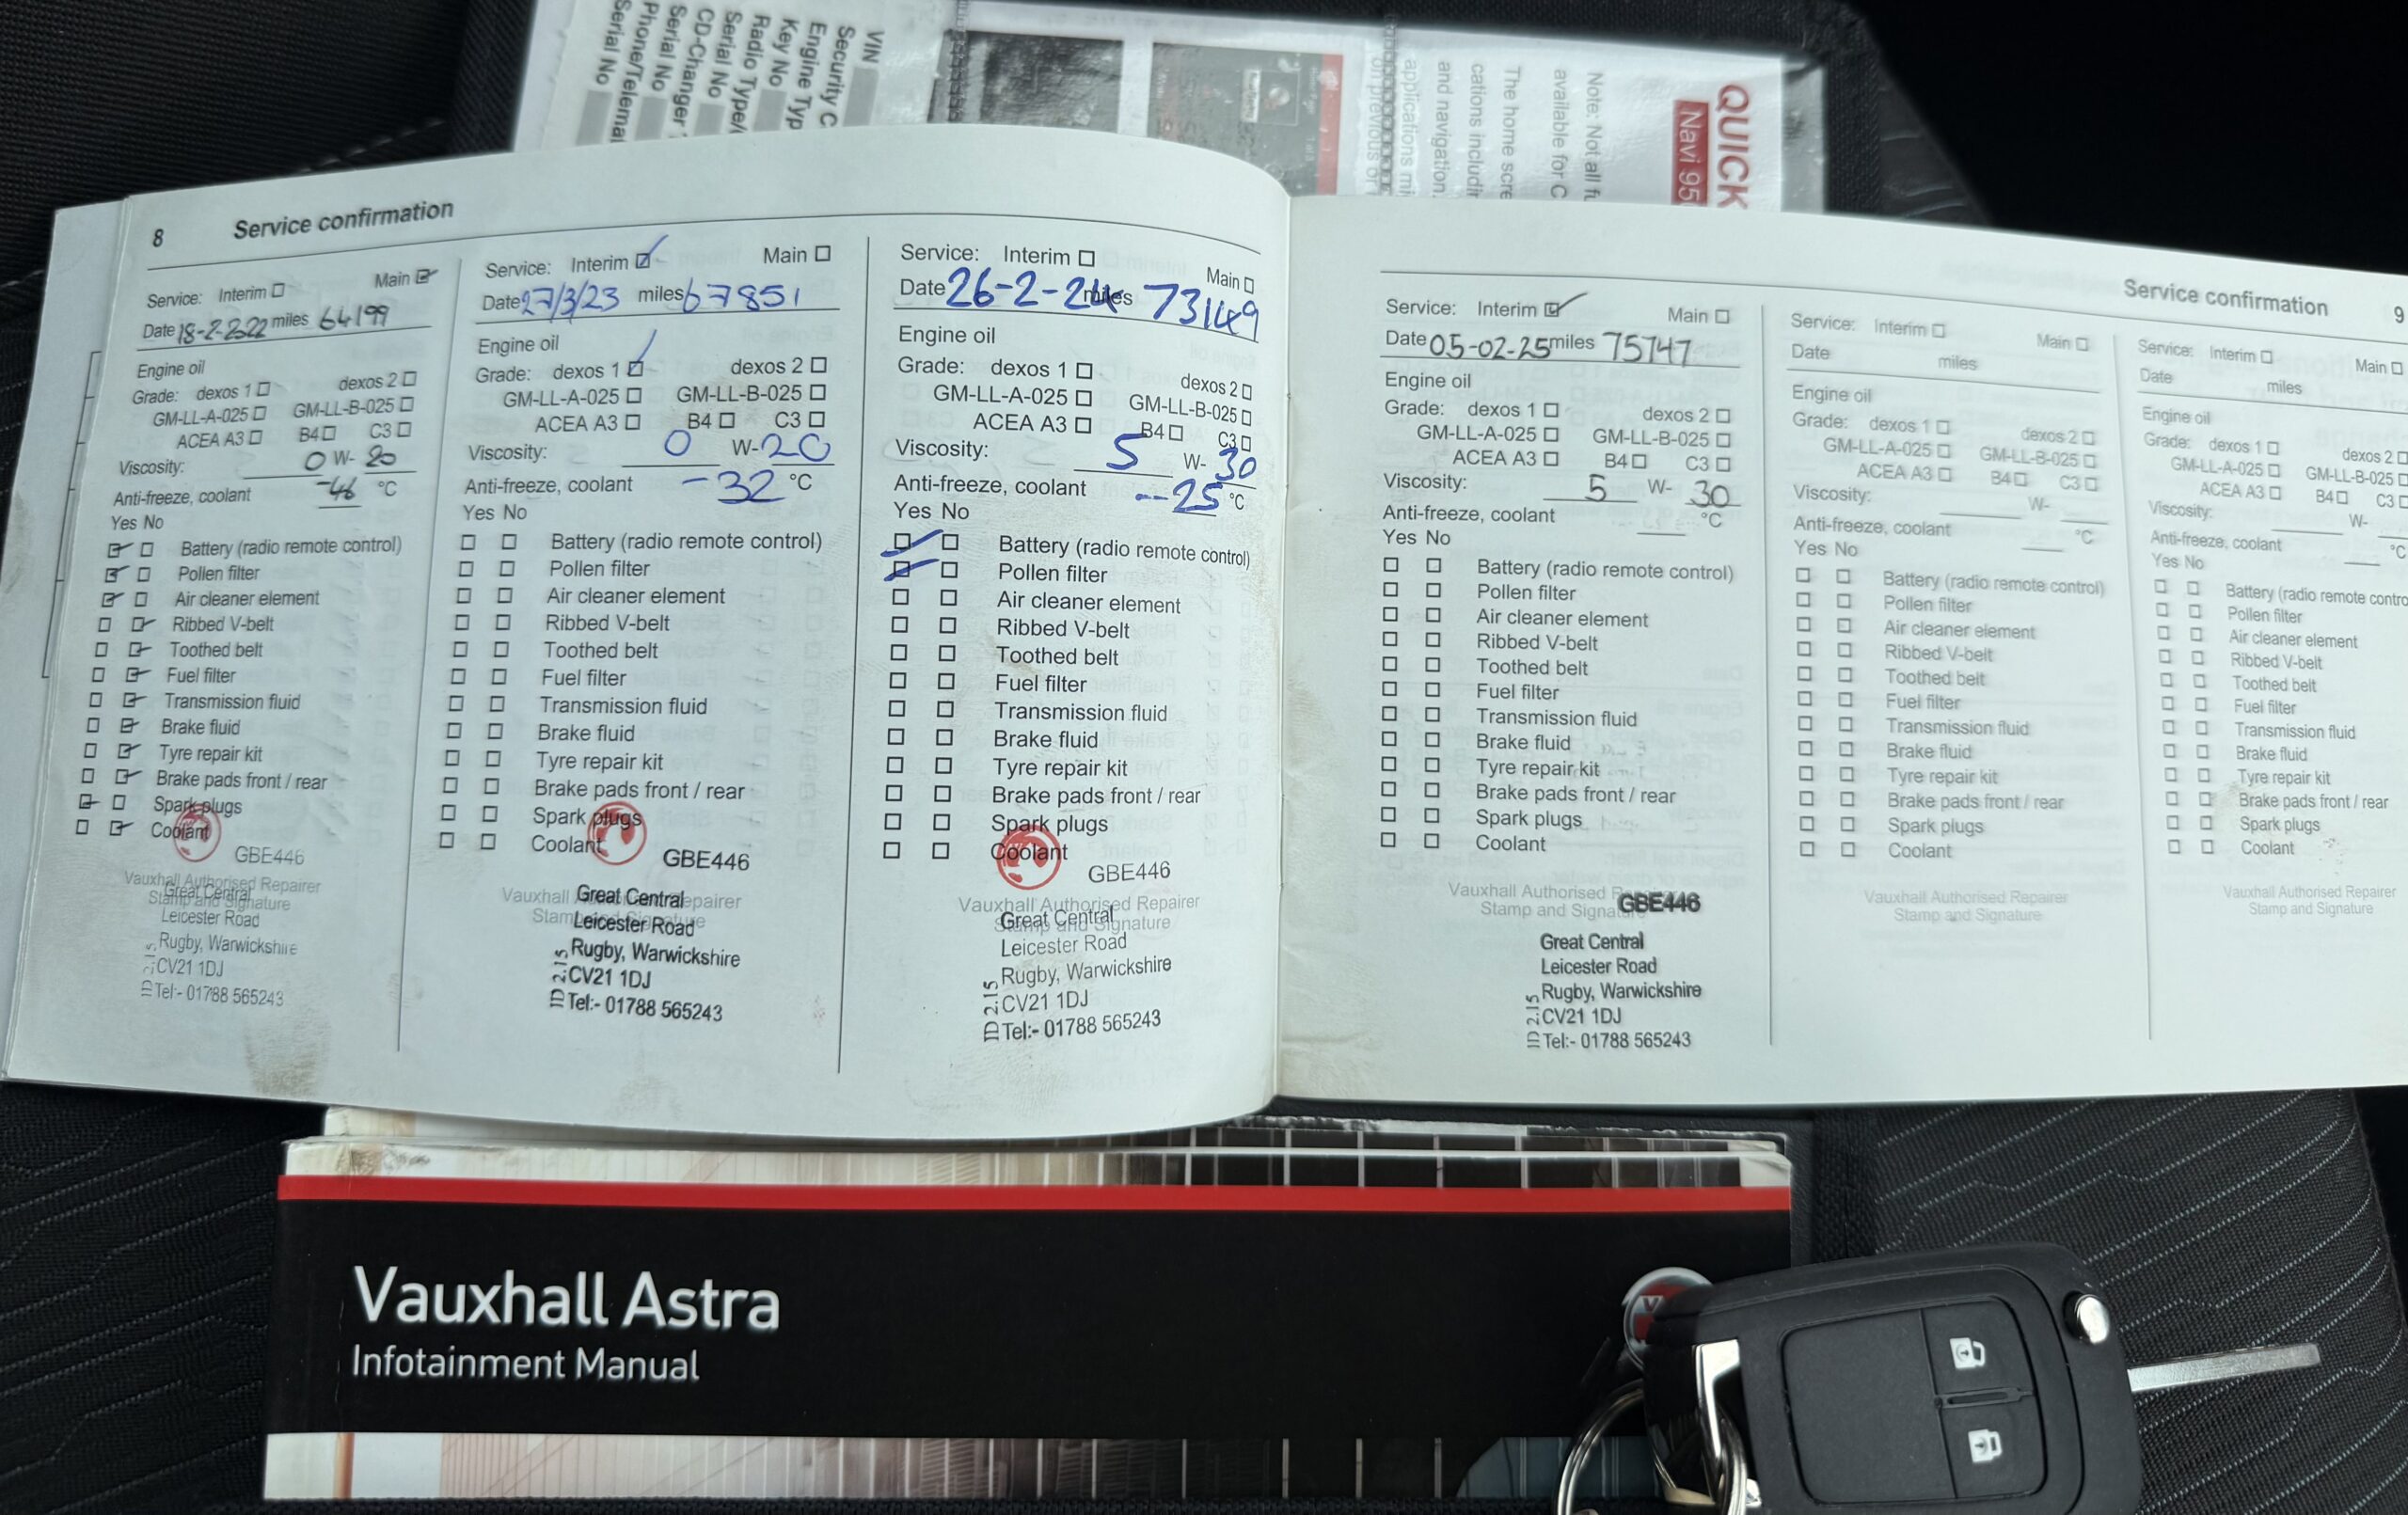 VIN
Security C
Engine Typ
Key No
Radio Type/
Serial No
CD-Changer
Serial No
Phone/Telema
Serial No
QUICK
Navi 95
Note: Not all fu
available for C
The home scre
cations includin
and navigation.
applications mi
on previous or
8 Service confirmation
Service: Interim ☐ Main ☑
Date 18-2-2022 miles 64199
Engine oil
Grade: dexos 1 ☐ dexos 2 ☐
GM-LL-A-025 ☐ GM-LL-B-025 ☐
ACEA A3 ☐ B4 ☐ C3 ☐
Viscosity: 0 W- 20
Anti-freeze, coolant -46 °C
Yes No
☑ ☐ Battery (radio remote control)
☑ ☐ Pollen filter
☑ ☐ Air cleaner element
☐ ☑ Ribbed V-belt
☐ ☑ Toothed belt
☐ ☑ Fuel filter
☐ ☑ Transmission fluid
☐ ☑ Brake fluid
☐ ☑ Tyre repair kit
☐ ☑ Brake pads front / rear
☑ ☐ Spark plugs
☐ ☑ Coolant
GBE446
Vauxhall Authorised Repairer
Stamp and Signature
Great Central
Leicester Road
Rugby, Warwickshire
CV21 1DJ
Tel:- 01788 565243
Service: Interim ☑ Main ☐
Date 27/3/23 miles 67851
Engine oil
Grade: dexos 1 ☑ dexos 2 ☐
GM-LL-A-025 ☐ GM-LL-B-025 ☐
ACEA A3 ☐ B4 ☐ C3 ☐
Viscosity: 0 W- 20
Anti-freeze, coolant -32 °C
Yes No
☐ ☐ Battery (radio remote control)
☐ ☐ Pollen filter
☐ ☐ Air cleaner element
☐ ☐ Ribbed V-belt
☐ ☐ Toothed belt
☐ ☐ Fuel filter
☐ ☐ Transmission fluid
☐ ☐ Brake fluid
☐ ☐ Tyre repair kit
☐ ☐ Brake pads front / rear
☐ ☐ Spark plugs
☐ ☐ Coolant
GBE446
Vauxhall Authorised Repairer
Stamp and Signature
Great Central
Leicester Road
Rugby, Warwickshire
CV21 1DJ
Tel:- 01788 565243
ID 2.15
Service: Interim ☐ Main ☐
Date 26-2-24 miles 73149
Engine oil
Grade: dexos 1 ☐ dexos 2 ☐
GM-LL-A-025 ☐ GM-LL-B-025 ☐
ACEA A3 ☐ B4 ☐ C3 ☐
Viscosity: 5 W- 30
Anti-freeze, coolant --25 °C
Yes No
☑ ☐ Battery (radio remote control)
☑ ☐ Pollen filter
☐ ☐ Air cleaner element
☐ ☐ Ribbed V-belt
☐ ☐ Toothed belt
☐ ☐ Fuel filter
☐ ☐ Transmission fluid
☐ ☐ Brake fluid
☐ ☐ Tyre repair kit
☐ ☐ Brake pads front / rear
☐ ☐ Spark plugs
☐ ☐ Coolant
GBE446
Vauxhall Authorised Repairer
Stamp and Signature
Great Central
Leicester Road
Rugby, Warwickshire
CV21 1DJ
Tel:- 01788 565243
ID 2.15
Service confirmation 9
Service: Interim ☑ Main ☐
Date 05-02-25 miles 75747
Engine oil
Grade: dexos 1 ☐ dexos 2 ☐
GM-LL-A-025 ☐ GM-LL-B-025 ☐
ACEA A3 ☐ B4 ☐ C3 ☐
Viscosity: 5 W- 30
Anti-freeze, coolant °C
Yes No
☐ ☐ Battery (radio remote control)
☐ ☐ Pollen filter
☐ ☐ Air cleaner element
☐ ☐ Ribbed V-belt
☐ ☐ Toothed belt
☐ ☐ Fuel filter
☐ ☐ Transmission fluid
☐ ☐ Brake fluid
☐ ☐ Tyre repair kit
☐ ☐ Brake pads front / rear
☐ ☐ Spark plugs
☐ ☐ Coolant
Vauxhall Authorised Repairer
Stamp and Signature
GBE446
Great Central
Leicester Road
Rugby, Warwickshire
CV21 1DJ
Tel:- 01788 565243
ID 2.15
Service: Interim ☐ Main ☐
Date miles
Engine oil
Grade: dexos 1 ☐ dexos 2 ☐
GM-LL-A-025 ☐ GM-LL-B-025 ☐
ACEA A3 ☐ B4 ☐ C3 ☐
Viscosity: W-
Anti-freeze, coolant °C
Yes No
☐ ☐ Battery (radio remote control)
☐ ☐ Pollen filter
☐ ☐ Air cleaner element
☐ ☐ Ribbed V-belt
☐ ☐ Toothed belt
☐ ☐ Fuel filter
☐ ☐ Transmission fluid
☐ ☐ Brake fluid
☐ ☐ Tyre repair kit
☐ ☐ Brake pads front / rear
☐ ☐ Spark plugs
☐ ☐ Coolant
Vauxhall Authorised Repairer
Stamp and Signature
Service: Interim ☐ Main ☐
Date miles
Engine oil
Grade: dexos 1 ☐ dexos 2 ☐
GM-LL-A-025 ☐ GM-LL-B-025
ACEA A3 ☐ B4 ☐ C3
Viscosity: W-
Anti-freeze, coolant °C
Yes No
☐ ☐ Battery (radio remote contro
☐ ☐ Pollen filter
☐ ☐ Air cleaner element
☐ ☐ Ribbed V-belt
☐ ☐ Toothed belt
☐ ☐ Fuel filter
☐ ☐ Transmission fluid
☐ ☐ Brake fluid
☐ ☐ Tyre repair kit
☐ ☐ Brake pads front / rear
☐ ☐ Spark plugs
☐ ☐ Coolant
Vauxhall Authorised Repairer
Stamp and Signature
Vauxhall Astra
Infotainment Manual